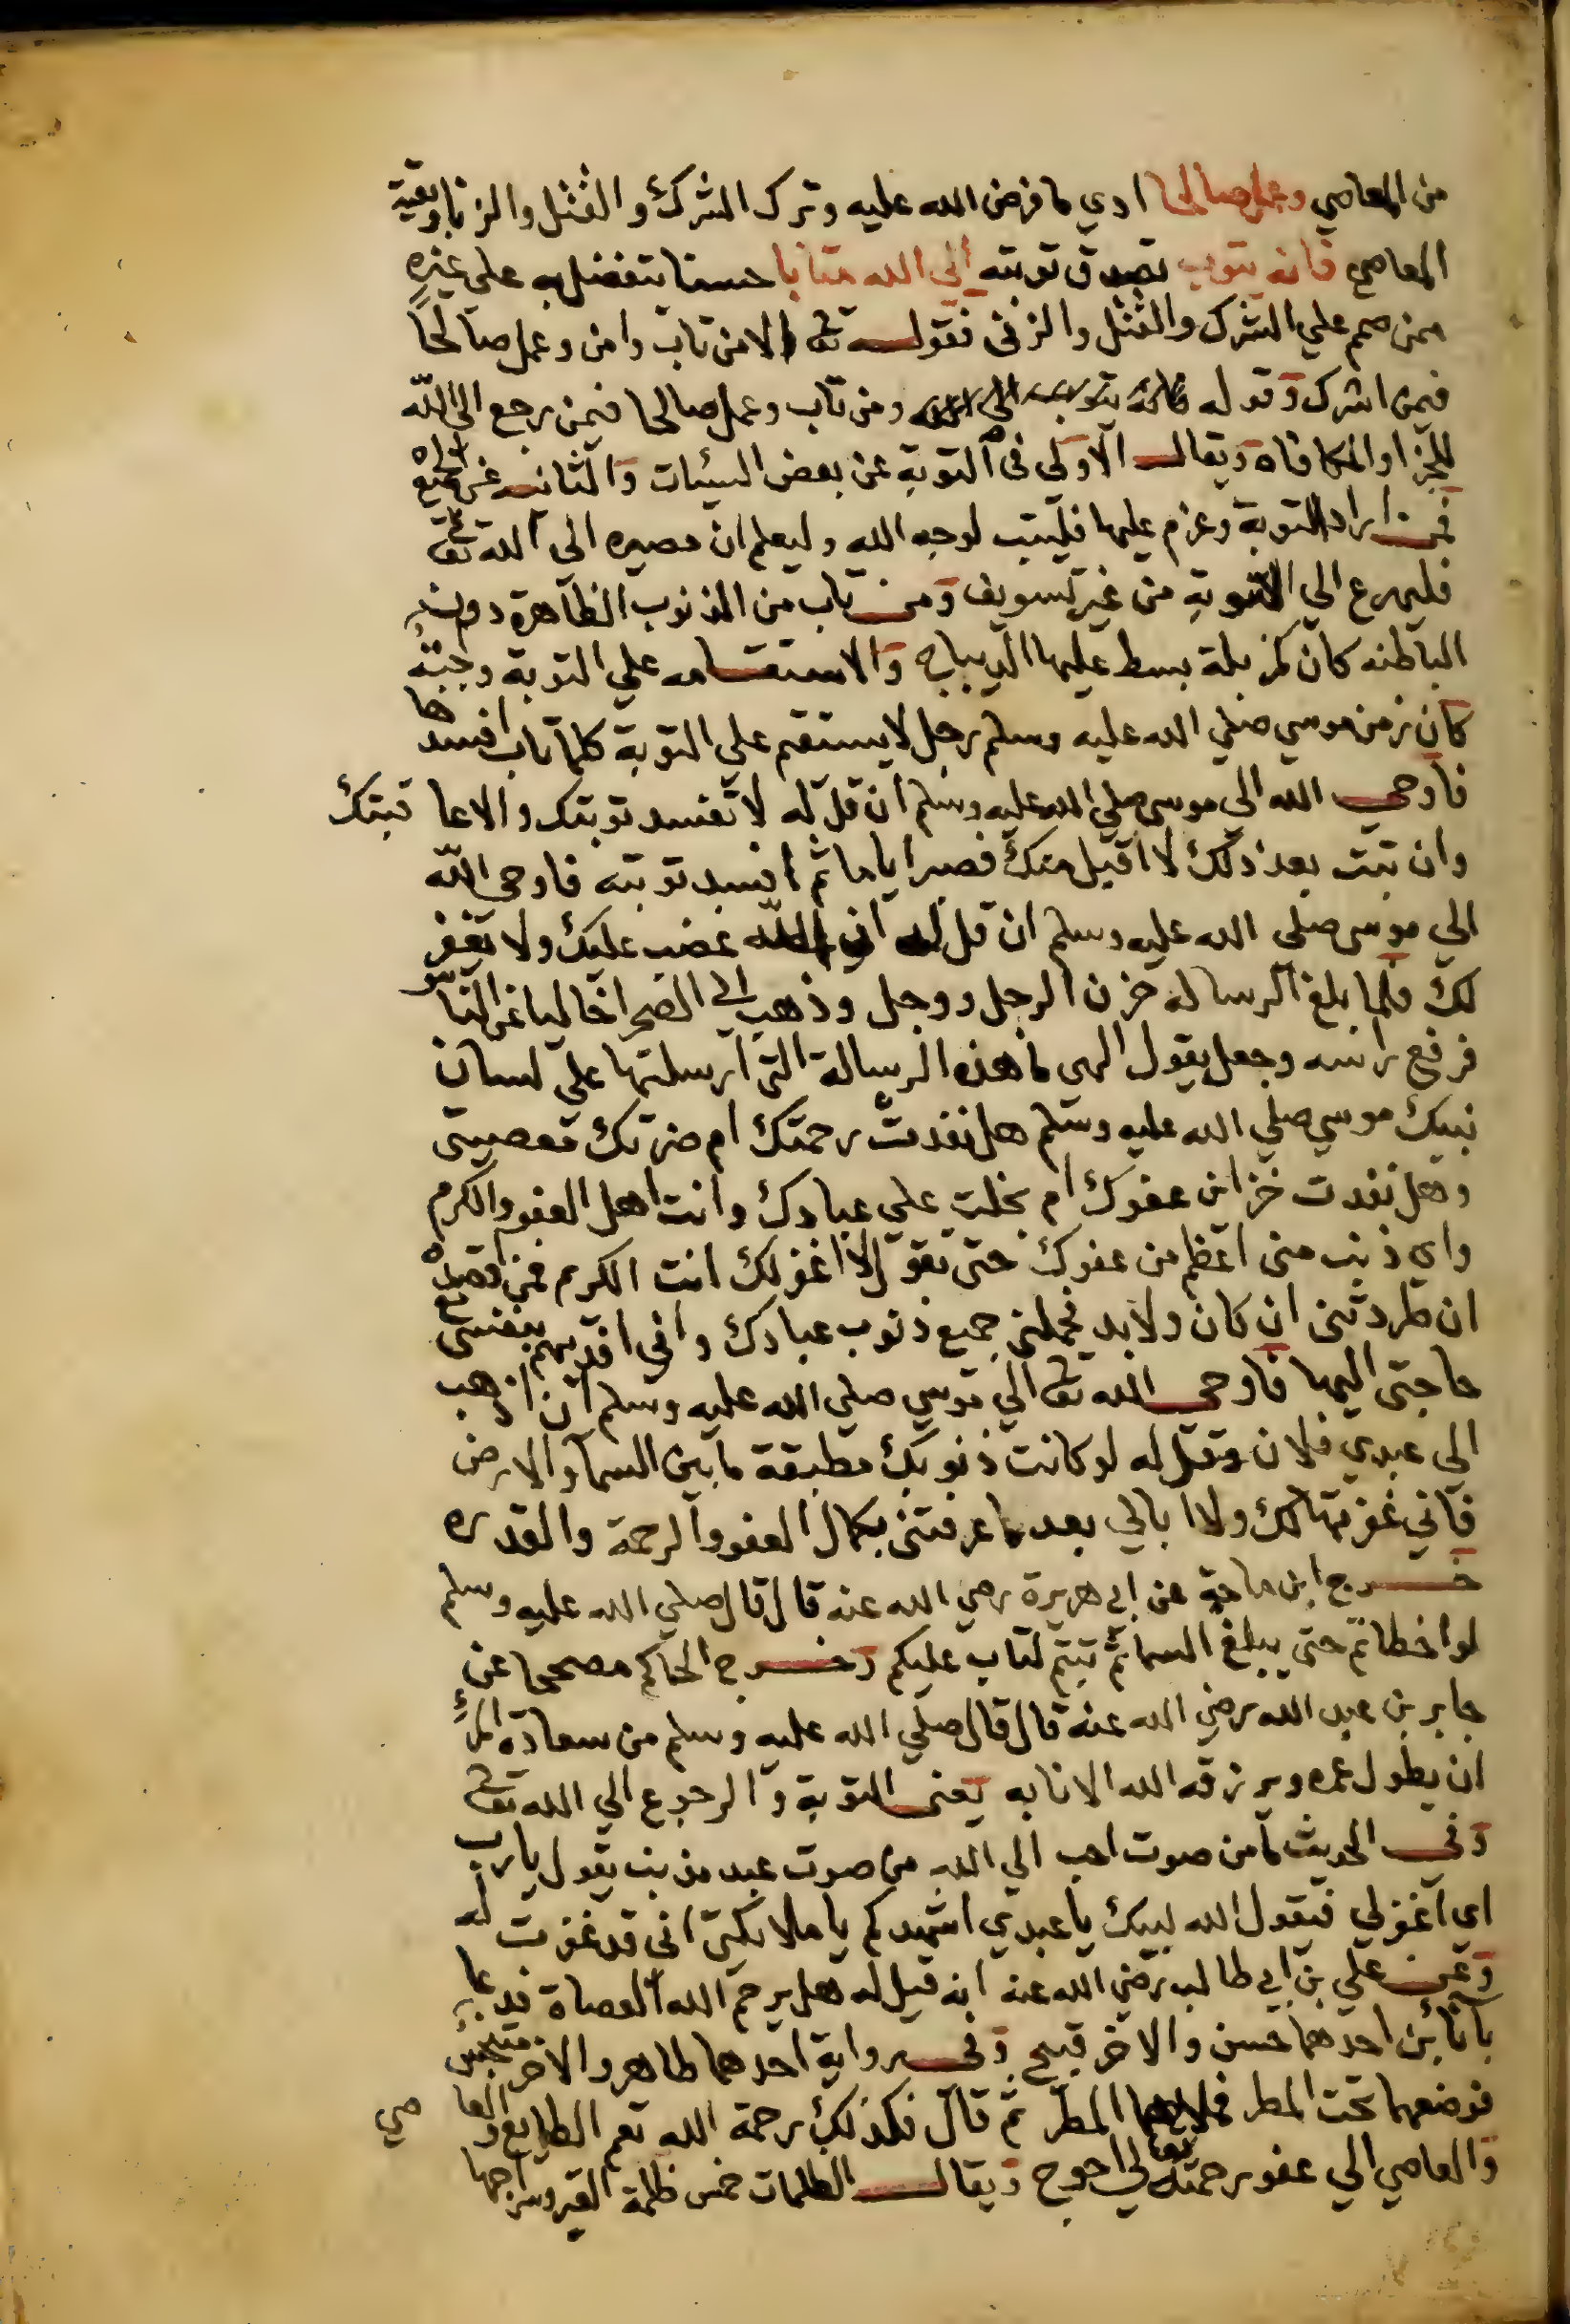 من المعاصي وعمل صالحا ادي ما فرض الله عليه وترك الشرك والقتل والزنا وبقية
المعاصي فانه يتوب تصدق توبته الي الله متابا حسنا يتفضل به على غيره
ممن صمم علي الشرك والقتل والزنى فقوله تع الا من تاب وامن وعمل صالحاً
فيمن اشرك وقوله ومن تاب وعمل صالحا فيمن رجع الى الله
للجزا والمكافاه ويقال الاولى فى التوبة عن بعض السيئات والثانى عن جميع
فمن اراد التوبة وعزم عليها فليتب لوجه الله وليعلم ان مصيره الى الله تعا
فليهرع الي التوبة من غير تسويف ومن تاب من الذنوب الظاهرة دون
الباطنه كان كمزبلة بسط عليها الديباج والاستقامه علي التوبة وجبته
كان زمن موسي صلي الله عليه وسلم رجل لا يستقم علي التوبة كلما تاب افسدها
فاوحى الله الي موسى صلي الله عليه وسلم ان قل له لا تفسد توبتك والا عاقبتك
وان تبت بعد ذلك لا اقبل منك فصبر اياما ثم افسد توبته فاوحى الله
الي موسى صلى الله عليه وسلم ان قل له ان الله غضب عليك ولا يغفر
لك فلما بلغ الرساله حزن الرجل ووجل وذهب الى الصحرا خاليا عن الناس
فرفع راسه وجعل يقول الهى ما هذه الرسالة التى ارسلتها علي لسان
نبيك موسي صلي الله عليه وسلم هل نفدت رحمتك ام ضرتك معصيتى
وهل نفدت خزاين عفوك ام بخلت علي عبادك وانت اهل العفو والكرم
واي ذنب منى اعظم من عفوك حتى تقول لا اغفر لك انت الكريم فمن اقصده
ان طردتنى ان كان ولا بد فحملنى جميع ذنوب عبادك وانى افديهم بنفسى مع
حاجتى اليها فاوحى الله تعا الي موسي صلي الله عليه وسلم ان اذهب
الى عبدي فلان وقل له لو كانت ذنوبك مطبقة ما بين السما والارض
فانى غفرتها لك ولا ابالي بعد ما عرفتنى بكمال العفو والرحمة والقدره
خرج ابن ماجة عن ابي هريرة رضي الله عنه قال قال صلي الله عليه وسلم
لو اخطاتم حتى يبلغ السما ثم تبتم لتاب عليكم وخرج الحاكم مصححا عن
جابر بن عبد الله رضي الله عنه قال قال صلي الله عليه وسلم من سعادة المرء
ان يطول عمره ويرزقه الله الانابه يعنى التوبة والرجوع الي الله تعا
وفى الحديث ما من صوت احب الي الله من صوت عبد مذنب يقول يا رب
اي اغفر لي فيقول الله لبيك يا عبدي اشهدكم يا ملائكتى انى قد غفرت له
وعن علي بن ابي طالب رضي الله عنه انه قيل له هل يرحم الله العصاة فدعا
بانائين احدهما حسن والاخر قبيح وفى رواية احدهما طاهر والاخر متنجس
فوضعهما تحت المطر فملاهما المطر ثم قال فكذلك رحمة الله تعم الطايع والعاصي
والعاصي الي عفو رحمته تعالي احوج ويقال الظلمات خمس ظلمة القبر وسراجها